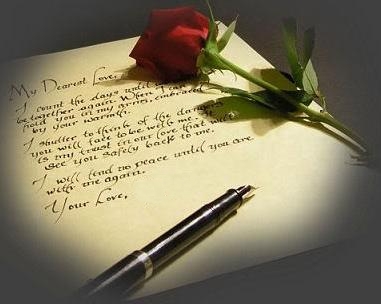 My Dearest Love,
I count the days until
be together again. When I can
hold you in my arms, embraced
by your warmth.
I shutter to think of the dangers
you will face to be with me. It
is my trust in our love that will
see you safely back to me.
I will fend no peace until you are
with me again.
Your Love,